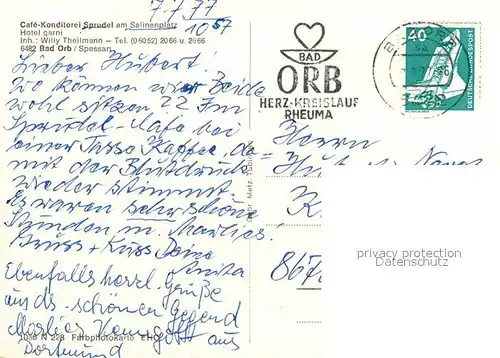 7.7.77
10⁵⁷
Café-Konditorei Sprudel am Salinenplatz
Hotel garni
Inh.: Willy Theilmann – Tel. (06052) 2066 u. 2666
6482 Bad Orb / Spessart
Lieber Hubert.
Wo können wir Beide
wohl sitzen 22 Im
Sprudel-Kafe bei
einer Tasse Kaffee, da-
mit der Blutdruck
wieder stimmt.
Es waren sehr schöne
Stunden m. Marlies.
Gruss + Kuss Deine
Anita
Ebenfalls herzl. Grüße
aus d. schönen Gegend
Marlies aus
Dortmund
1056 N 228 Farbphotokarte
BAD
ORB
HERZ-KREISLAUF
RHEUMA
40
DEUTSCHE BUNDESPOST
Herrn
867
privacy protection
Datenschutz